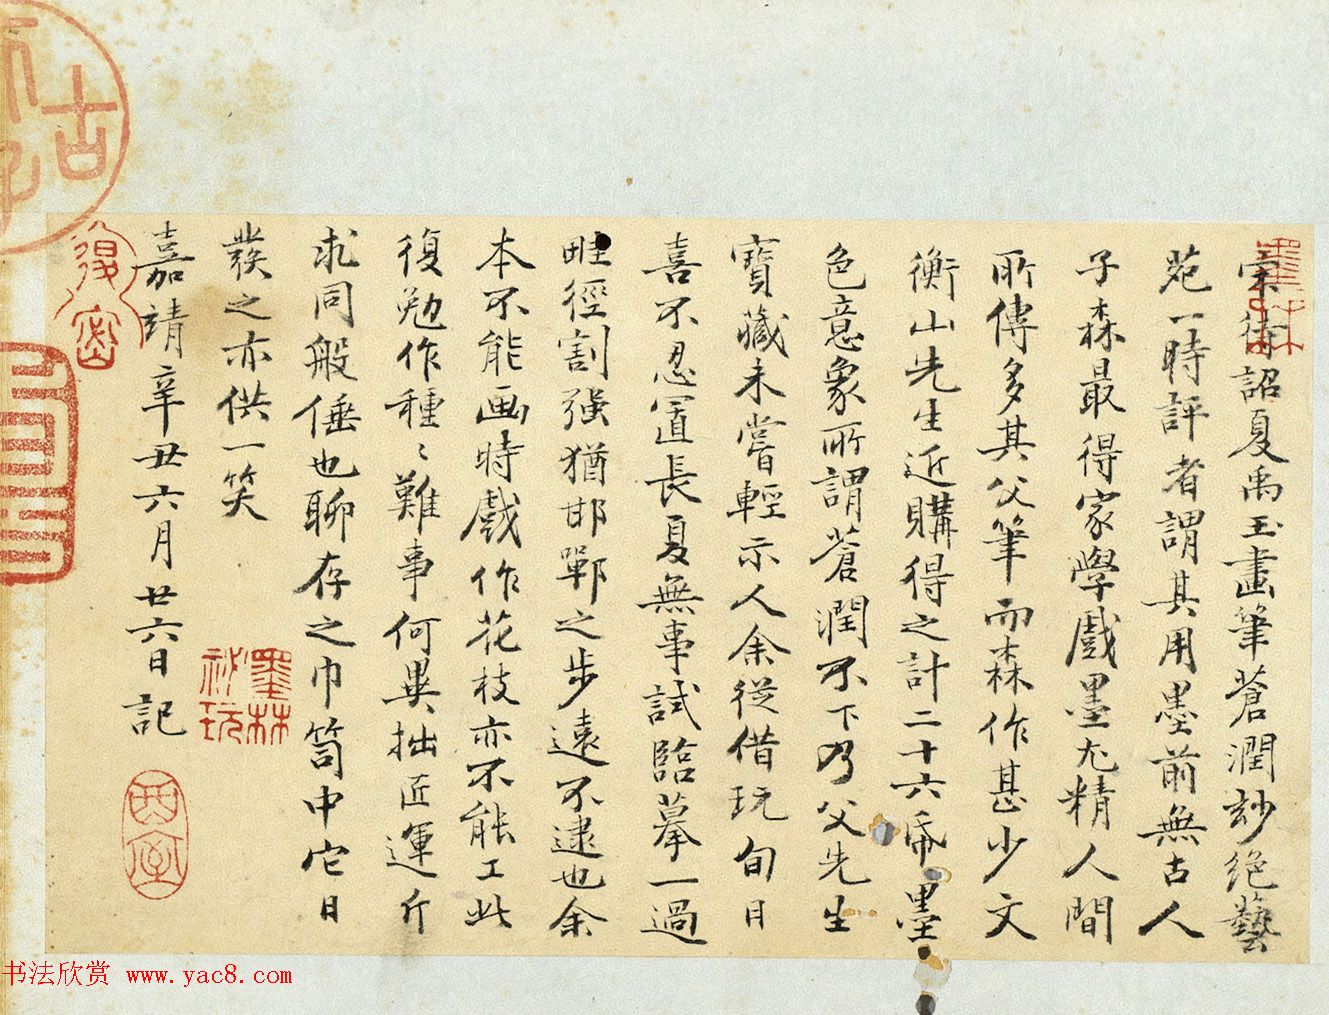 宋待詔夏禹玉畫筆蒼潤玅絕藝
苑一時評者謂其用墨前無古人
子森最得家學戲墨尤精人間
所傳多其父筆而森作甚少文
衡山先生近購得之計二十六帋墨
色意象所謂蒼潤不下乃父先生
寶藏未嘗輕示人余從借玩旬日
喜不忍置長夏無事試臨摹一過
畦徑割强猶邯鄲之步遠不逮也余
本不能画時戲作花枝亦不能工此
復勉作種〻難事何異拙匠運斤
求同般倕也聊存之巾笥中它日
發之亦供一笑
嘉靖辛丑六月廿六日記
墨林
墨林
祕玩
酉室
書法欣赏 www.yac8.com